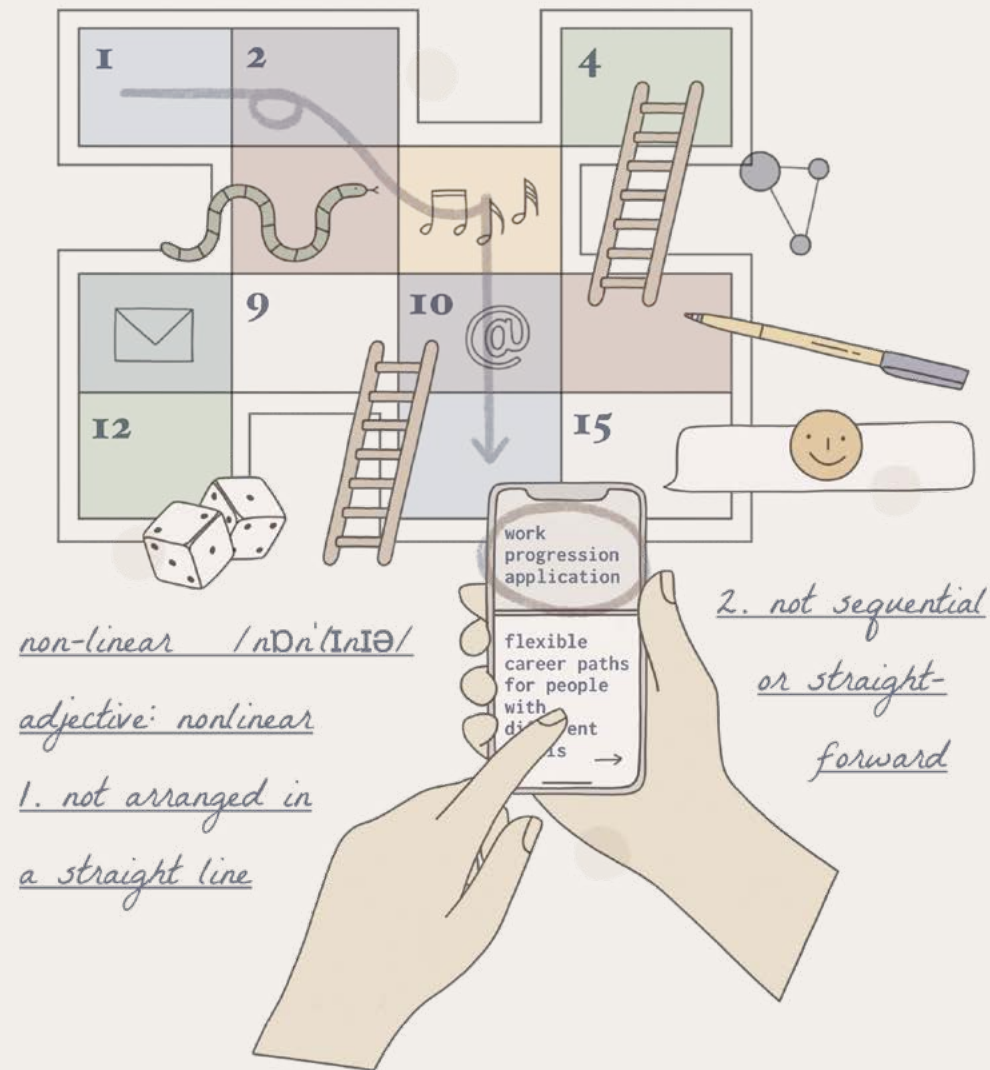 1 2 4
9 10
@
12 15
work
progression
application
flexible
career paths
for people
with
non-linear /nɒnˈlɪnɪə/
adjective: nonlinear
1. not arranged in
a straight line
2. not sequential
or straight-
forward